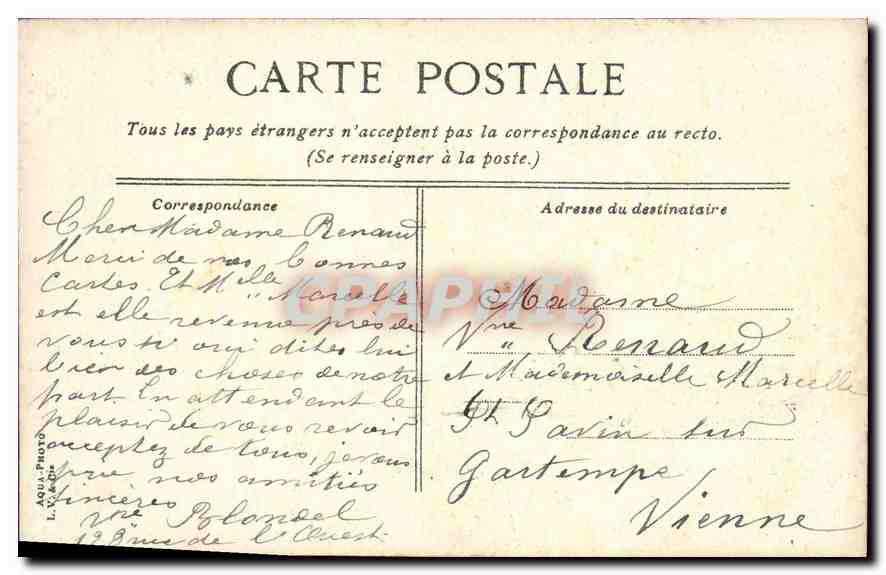 CARTE POSTALE
Tous les pays étrangers n'acceptent pas la correspondance au recto.
(Se renseigner à la poste.)
Correspondance
Cher Madame Renaud
Merci de vos bonnes
cartes. Et Melle
" Marcelle
est elle revenue près de
vous si oui dites lui
bien des choses de notre
part. En attendant le
plaisir de vous revoir
acceptez de tous, je vous
prie nos amitiés
sincères
Vve Blondel
128 rue de l'Ouest
AQUA-PHOTO
L.V. & Cie
Adresse du destinataire
Madame
Vve " Renaud
et Mademoiselle Marcelle
St Savin sur
Gartempe
Vienne
CPAPHIL